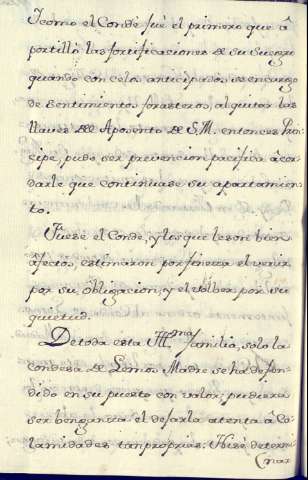 Y como el Conde fuè el primero que à
portillò las fortificaciones de su Suegro
quando con celos anticipados se encargo
de sentimientos forasteros, al quitar las
llaves del Aposento de S.M. entonces Prin
sipe, pudo ser prevencion pacifica àco
darle que continuase su apartamien
to.
Fuese el Conde, y los que le son bien
afectos estimaron por fineza el venir
por su obligacion, y el volber por su
quietud.
De toda esta Ill.ma familia, solo la
Condesa de Lemos Madre se ha defen
dido en su puesto con valor; pudiera
ser benganza el dejarla atenta à Ca
lamidades tan proprias. Hizè determi
nar